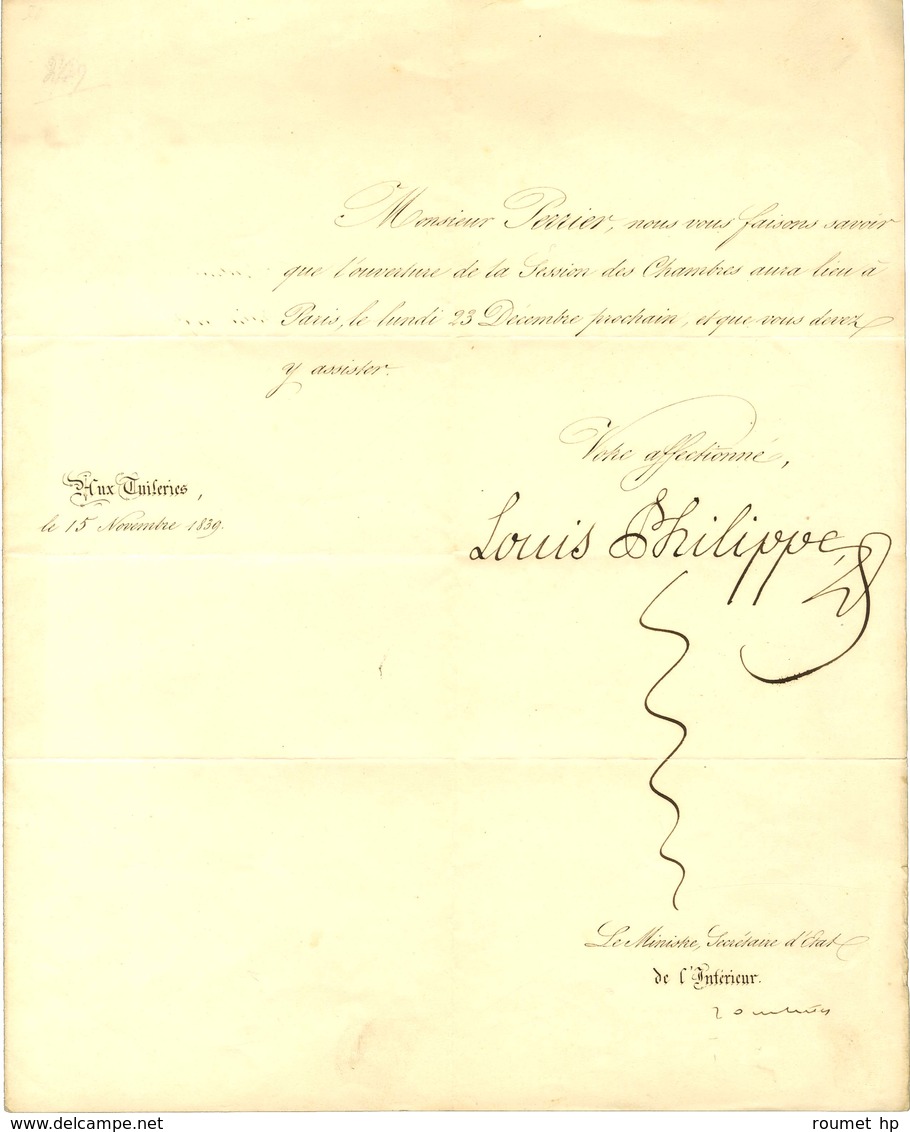 Monsieur Perrier, nous vous faisons savoir
que l'ouverture de la Session des Chambres aura lieu à
Paris, le lundi 23 Décembre prochain, et que vous devez
y assister.
Votre affectionné,
Aux Tuileries,
le 15 Novembre 1839.
Louis Philippe
Le Ministre, Secrétaire d'Etat
de l'Intérieur.
www.delcampe.net
roumet hp